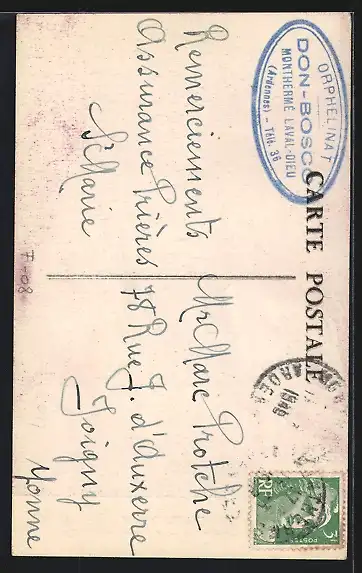 CARTE POSTALE
ORPHELINAT
DON-BOSCO
MONTHERMÉ LAVAL-DIEU
(Ardennes) - Télé. 36
Remerciements
Assurance Prières
Sr Marie
Mr Marc Protche
78 Rue J. d'Auxerre
Joigny
Yonne
3F
POSTES
RF
F-08